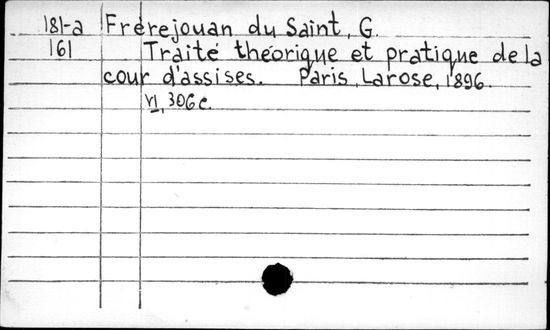 181-a Frérejouan du Saint, G.
161 Traité théorique et pratique de la
cour d'assises. Paris, Larose, 1896.
VI, 306 c.